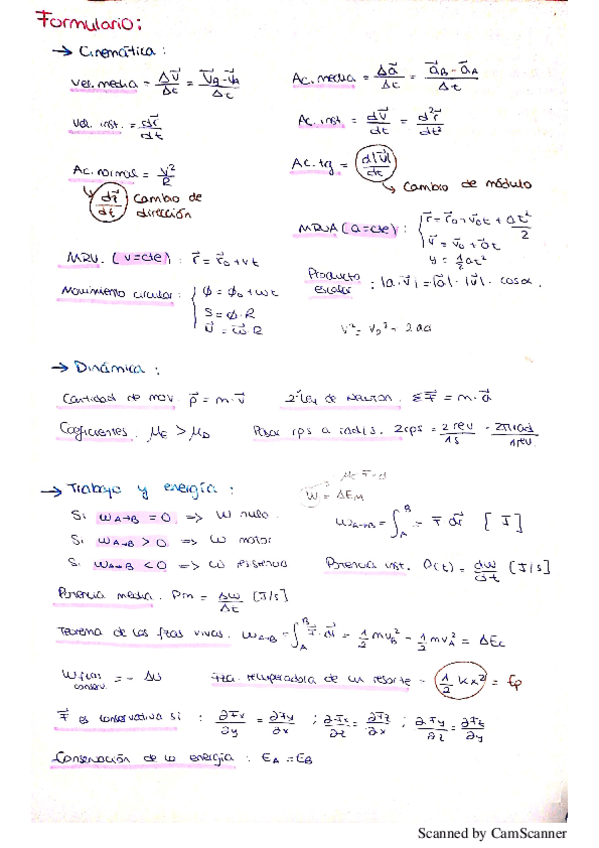 Formulario:
→ Cinemática:
Vel. media = Δv⃗/Δt = (v⃗B - v⃗A)/Δt
Ac. media = Δa⃗/Δt = (a⃗B - a⃗A)/Δt
Vel. inst. = dr⃗/dt
Ac. inst = dv⃗/dt = d²r⃗/dt²
Ac. normal = v²/R
Ac. tg = d|v⃗|/dt
cambio de
dirección
→ cambio de módulo
MRUA (a=cte): { r⃗ = r⃗0 + v⃗0t + at²/2
v⃗ = v⃗0 + a⃗t
y = 1/2 at²
MRU. (v=cte): r⃗ = r⃗0 + vt
Producto
escalar : |a·v⃗| = |a⃗|·|v⃗|·cosα.
Movimiento circular: { φ = φ0 + ωt
S = φ·R
v⃗ = ω⃗·R
→ Dinámica:
Cantidad de mov. p⃗ = m·v⃗
2ª Ley de Newton. ΣF⃗ = m·a⃗
Coeficientes.
Pasar rps a rad/s. 2rps = 2 rev/1s · 2πrad/1rev.
→ Trabajo y energía:
W = ΔEM
Si WA→B = 0 => W nulo.
WA→B = ∫A^B = F⃗ dr⃗ [J]
Si WA→B > 0 => W motor
Si WA→B < 0 =>
Potencia inst. P(t) = dW/dt [J/s]
Potencia media. Pm = ΔW/Δt [J/s]
Teorema de las fzas vivas. WA→B = ∫A^B F⃗·dr⃗ = 1/2 mvB² - 1/2 mvA² = ΔEc
W fzas
conserv. = - ΔU
fza. recuperadora de un resorte - 1/2 Kx² = Ep
F⃗ es conservativa si : ∂Fx/∂y = ∂Fy/∂x ; ∂Fx/∂z = ∂Fz/∂x ; ∂Fy/∂z = ∂Fz/∂y
Conservación de la energía : EA = EB
Scanned by CamScanner